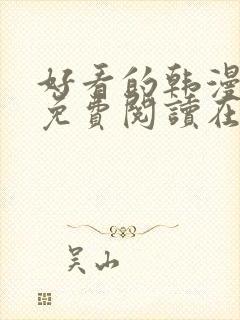 好看的韩漫
免費閱讀在
吴山